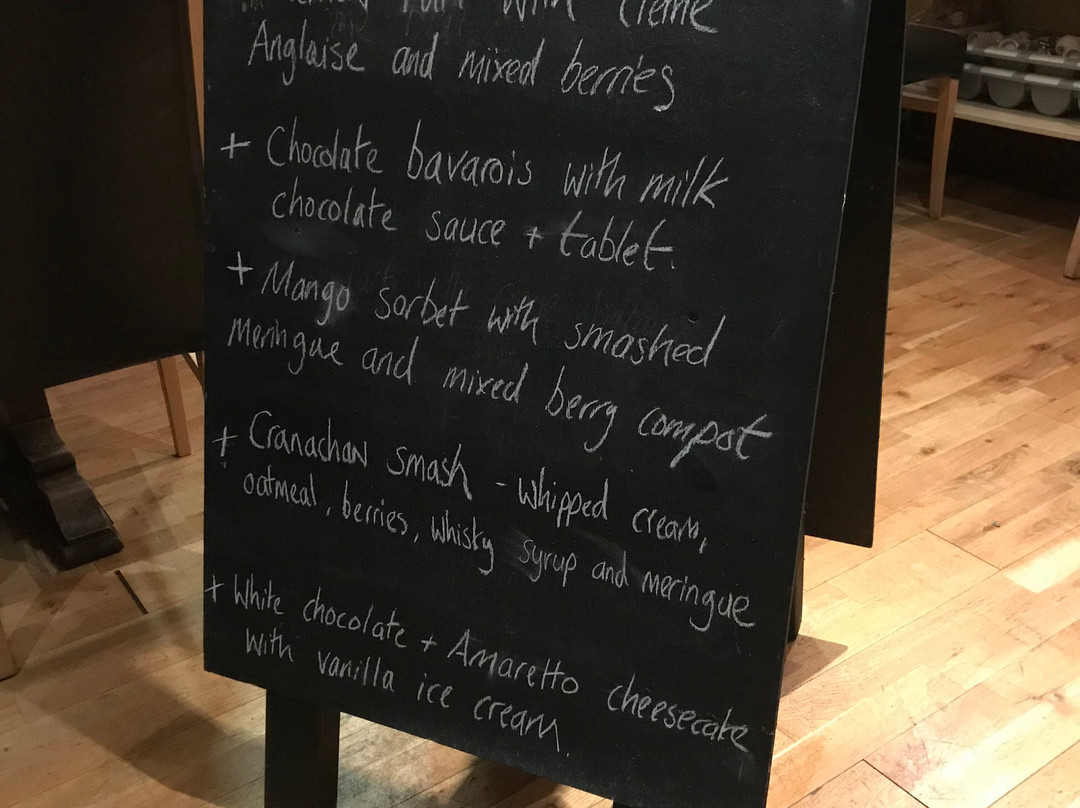 with Crème
Anglaise and mixed berries
+ Chocolate bavarois with milk
chocolate sauce + tablet.
+ Mango sorbet with smashed
meringue and mixed berry compot
+ Cranachan smash - whipped cream,
oatmeal, berries, whisky syrup and meringue
+ White chocolate + Amaretto cheesecake
with vanilla ice cream.